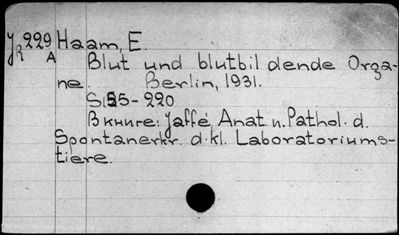 J 229 Haam, E.
R A Blut und blutbildende Orga-
ne Berlin, 1931.
S. 155-220
В книге: Jaffé Anat. u. Pathol. d.
Spontanerkr. d. kl. Laboratoriums-
tiere.